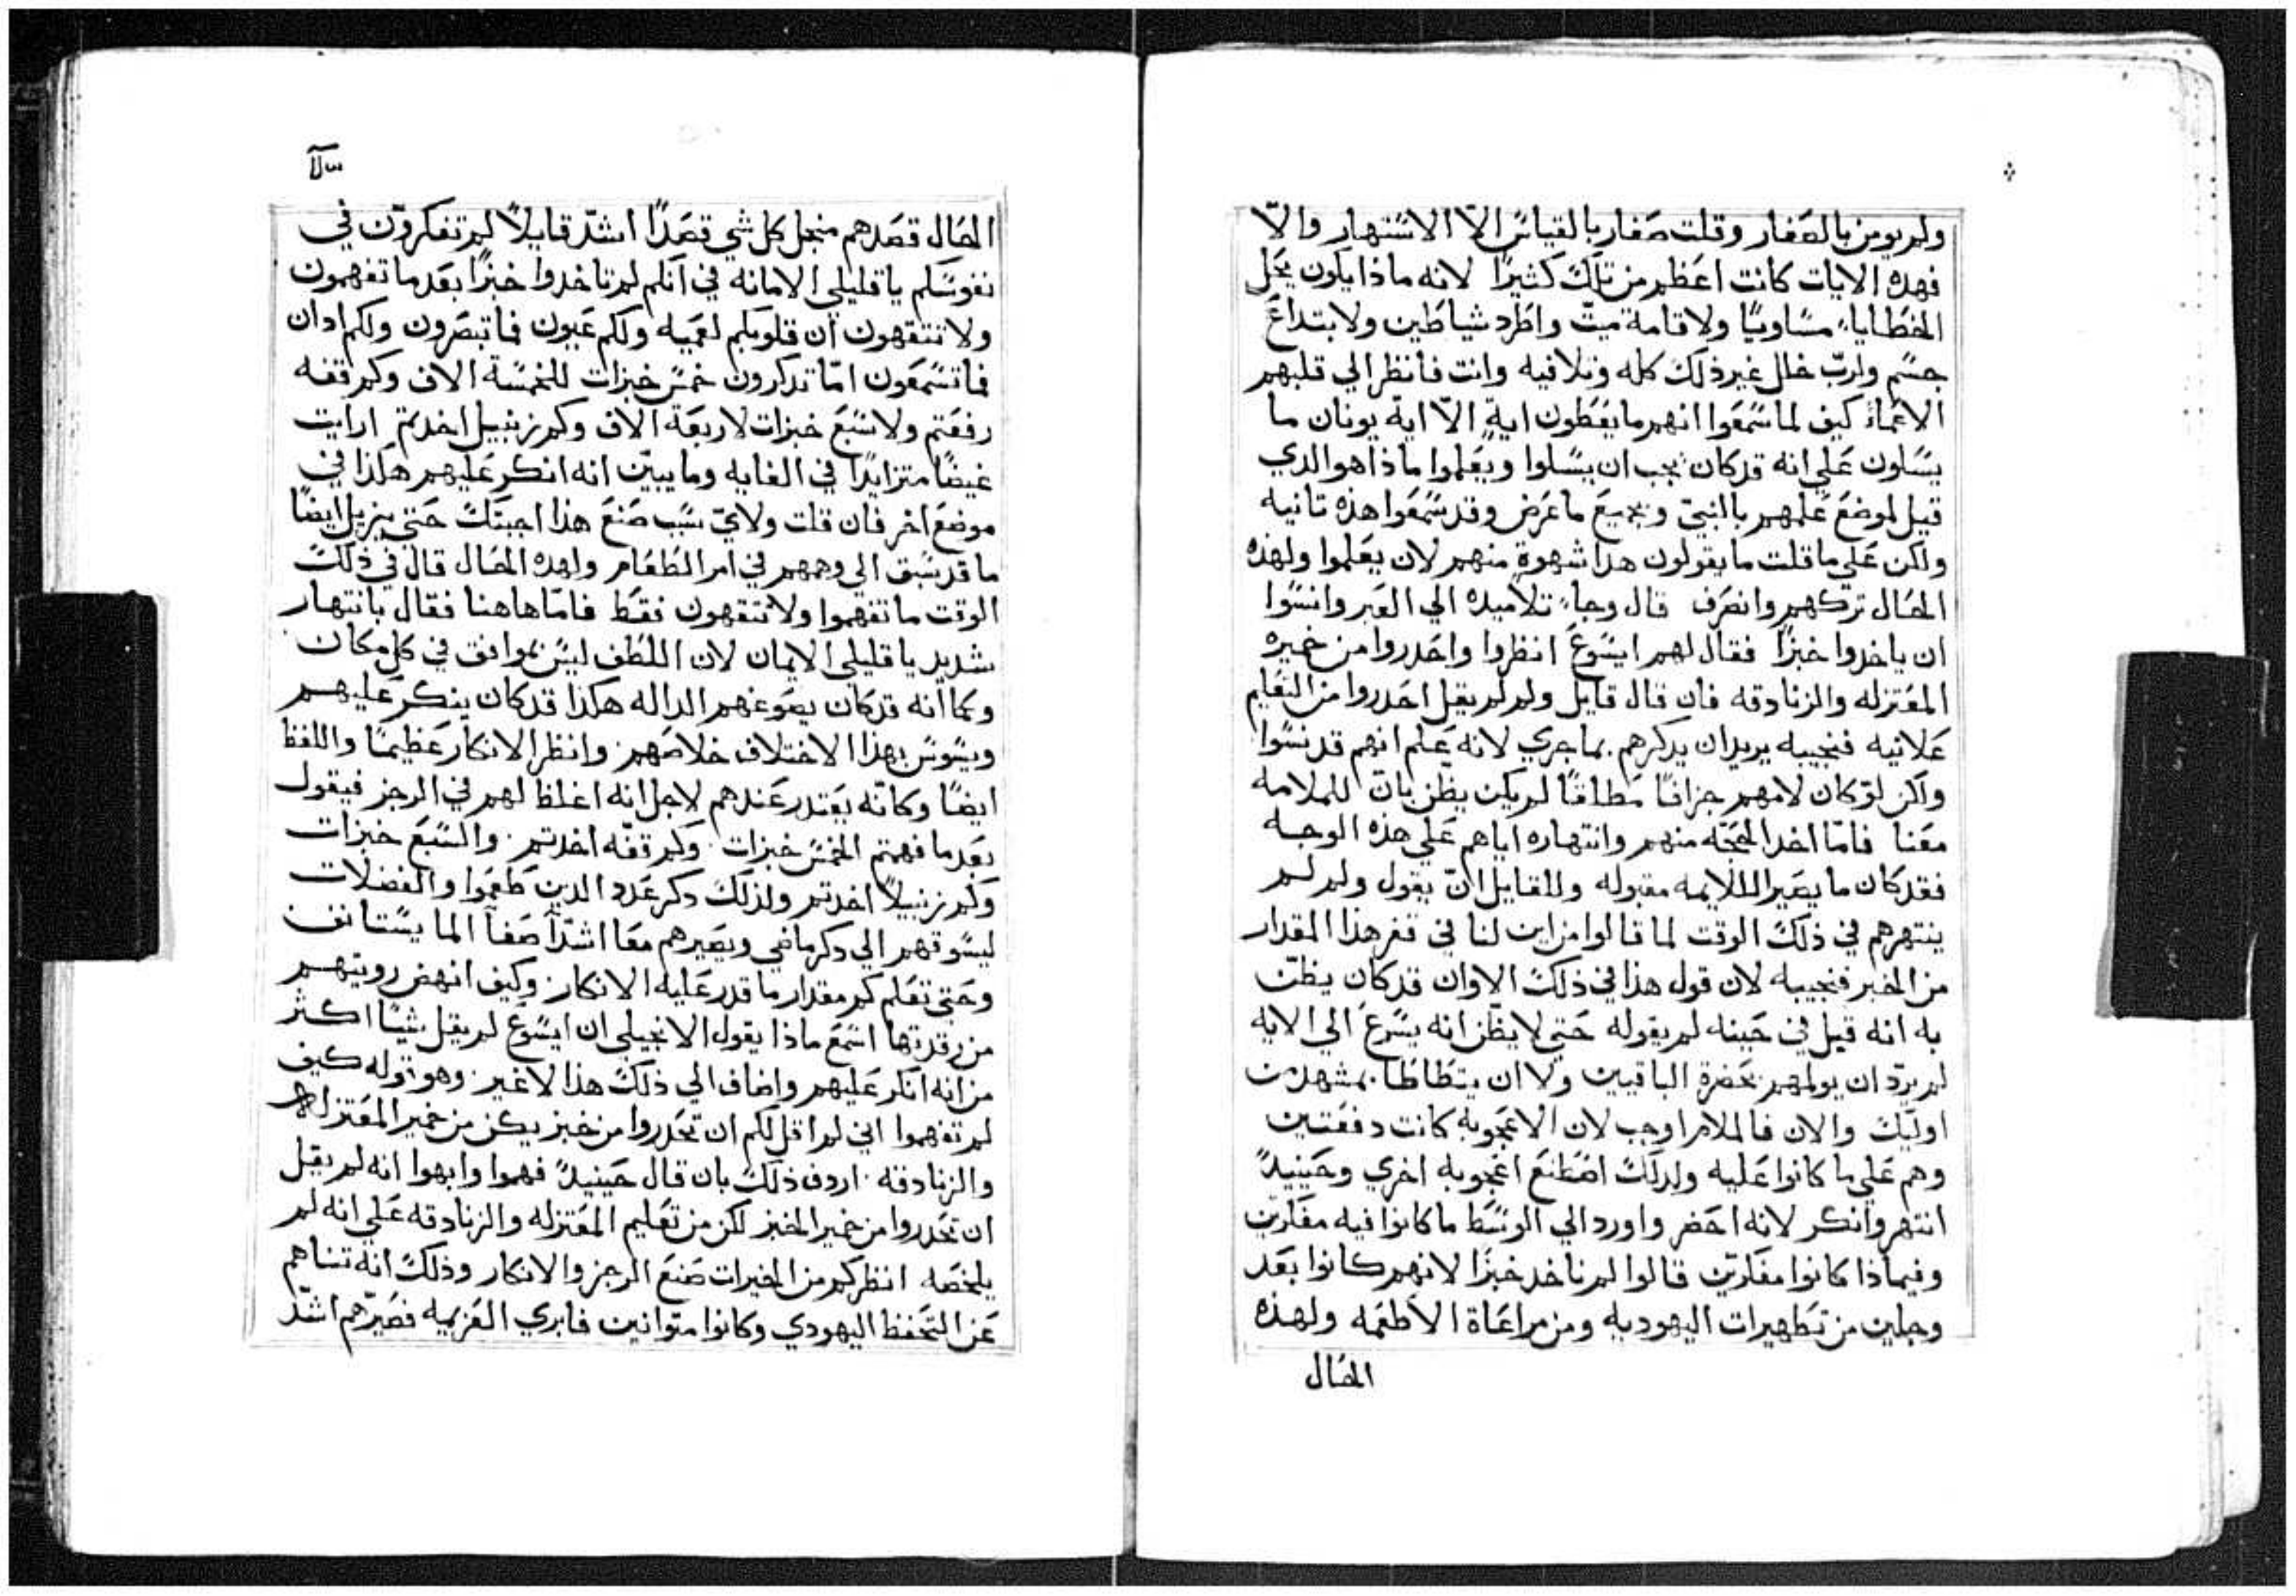 ولم يومن بالصغار وقلت صغار بالقياس الا الاشتهار والا
فهده الايات كانت اعظم من تلك كثيرًا لانه ماذا يكون يحل
الخطايا مساويًا ولاقامة ميت واطرد شياطين ولابتداع
جسم ولرب خال غير ذلك كله وتلافيه وانت فانظر الي قلبهم
الاعماء كيف لما سمعوا انهم ما يعطون اية الا اية يونان ما
يسلون علي انه قد كان يجب ان يسلوا ويعلموا ماذا هو الدي
قيل لموضع علمهم بالنبي وبجميع ما عرض وقد سمعوا هذه تانيه
ولكن علي ما قلت ما يقولون هدا شهوة منهم لان يعلموا ولهذه
الحال تركهم وانصرف قال وجاء تلاميده الي العبر وانسوا
ان ياخدوا خبزًا فقال لهم ايسوع انظروا واحدروا من خميره
المعتزله والزنادقه فان قال قايل ولم لم يقل احدروا من التعليم
علانيه فنجيبه يريد ان يدكرهم بما جري لانه علم انهم قد نسوا
ولكن لو كان لامهم جزافًا مطلقًا لم يكن يظن بان للملامه
معنا فاما اخد الحجه منهم وانتهاره اياهم علي هذه الوجه
فقد كان ما يصير الملايمه مقبوله وللقايل ان يقول ولم لم
ينتهرهم في ذلك الوقت لما قالوا من اين لنا في قفر هذا المقدار
من الخبز فنجيبه لان قول هذا في ذلك الاوان قد كان يظن
به انه قيل في حينه لم يقوله حتي لا يظن انه يسرع الي الايه
لم يرد ان يولمهم بحضرة الباقيين ولا ان يتطاطا بمشهد من
اوليك والان فالملام اوجب لان الاعجوبه كانت دفعتين
وهم علي ما كانوا عليه ولدلك اصطنع اعجوبه اخري وحينيدً
انتهر وانكر لانه احضر واورد الي الوسط ما كانوا فيه مفكرين
وفيماذا كانوا مفكرين قالوا لم ناخد خبزًا لانهم كانوا بعد
وجلين من تطهيرات اليهوديه ومن مراعاة الاطعمه ولهذه
الحال
الحال قصدهم منجل كل شي قصدًا اشد قايلاً لم تفكرون في
نفوسكم يا قليلي الامانه في انكم لم تاخدوا خبزًا بعد ما تفهمون
ولا تتقهون ان قلوبكم لعميه ولكم عيون فما تبصرون ولكم ادان
فما تسمعون اما تدكرون خمس خبزات للخمسة الاف وكم قفه
رفعتم ولا سبع خبزات لاربعة الاف وكم زنبيل اخدتم ارايت
غيضًا متزايدًا في الغايه وما يبين انه انكر عليهم هكذا في
موضع اخر فان قلت ولاي سبب صنع هذا اجبتك حتي يزيل ايضًا
ما قد سبق الي وهمهم في امر الطعام ولهده الحال قال في ذلك
الوقت ما تفهموا ولا تتقهون فقط فاما هاهنا فقال بانتهار
شديد يا قليلي الايمان لان اللطف ليس بموافق في كل مكان
وكما انه قد كان يصوغهم الداله هكذا قد كان ينكر عليهم
ويسوس بهذا الاختلاف خلاصهم وانظر الانكار عظيمًا واللفظ
ايضًا وكانه يعتدر عندهم لاجل انه اغلظ لهم في الرجز فيقول
بعد ما فهمتم الخمس خبزات وكم قفه اخدتم والسبع خبزات
وكم زنبيلاً اخدتم ولدلك دكر عدد الدين طعموا والفضلات
ليسوقهم الي دكر ماضي ويصيرهم معا اشد اصغا الما يستانف
وحتي تعلم كم مقدار ما قدر عليه الانكار وكيف انهض رويتهم
من رقدتها اسمع ماذا يقول الانجيلي ان ايسوع لم يقل شيًا اكثر
من انه انكر عليهم واضاف الي ذلك هذا لا غير وهو قوله كيف
لم تفهموا اني لم اقل لكم ان تحدروا من خبز يكن من خمير المعتزله
والزنادقه اردف ذلك بان قال حينيدً فهموا وابهوا انه لم يقل
ان تحدروا من خمير الخبز لكن من تعليم المعتزله والزنادقه علي انه لم
يلخصه انظر كم من الخيرات صنع الرجز والانكار وذلك انه تناهم
عن التحفظ اليهودي وكانوا متوانين فابري العزيمه فصيرهم اشد